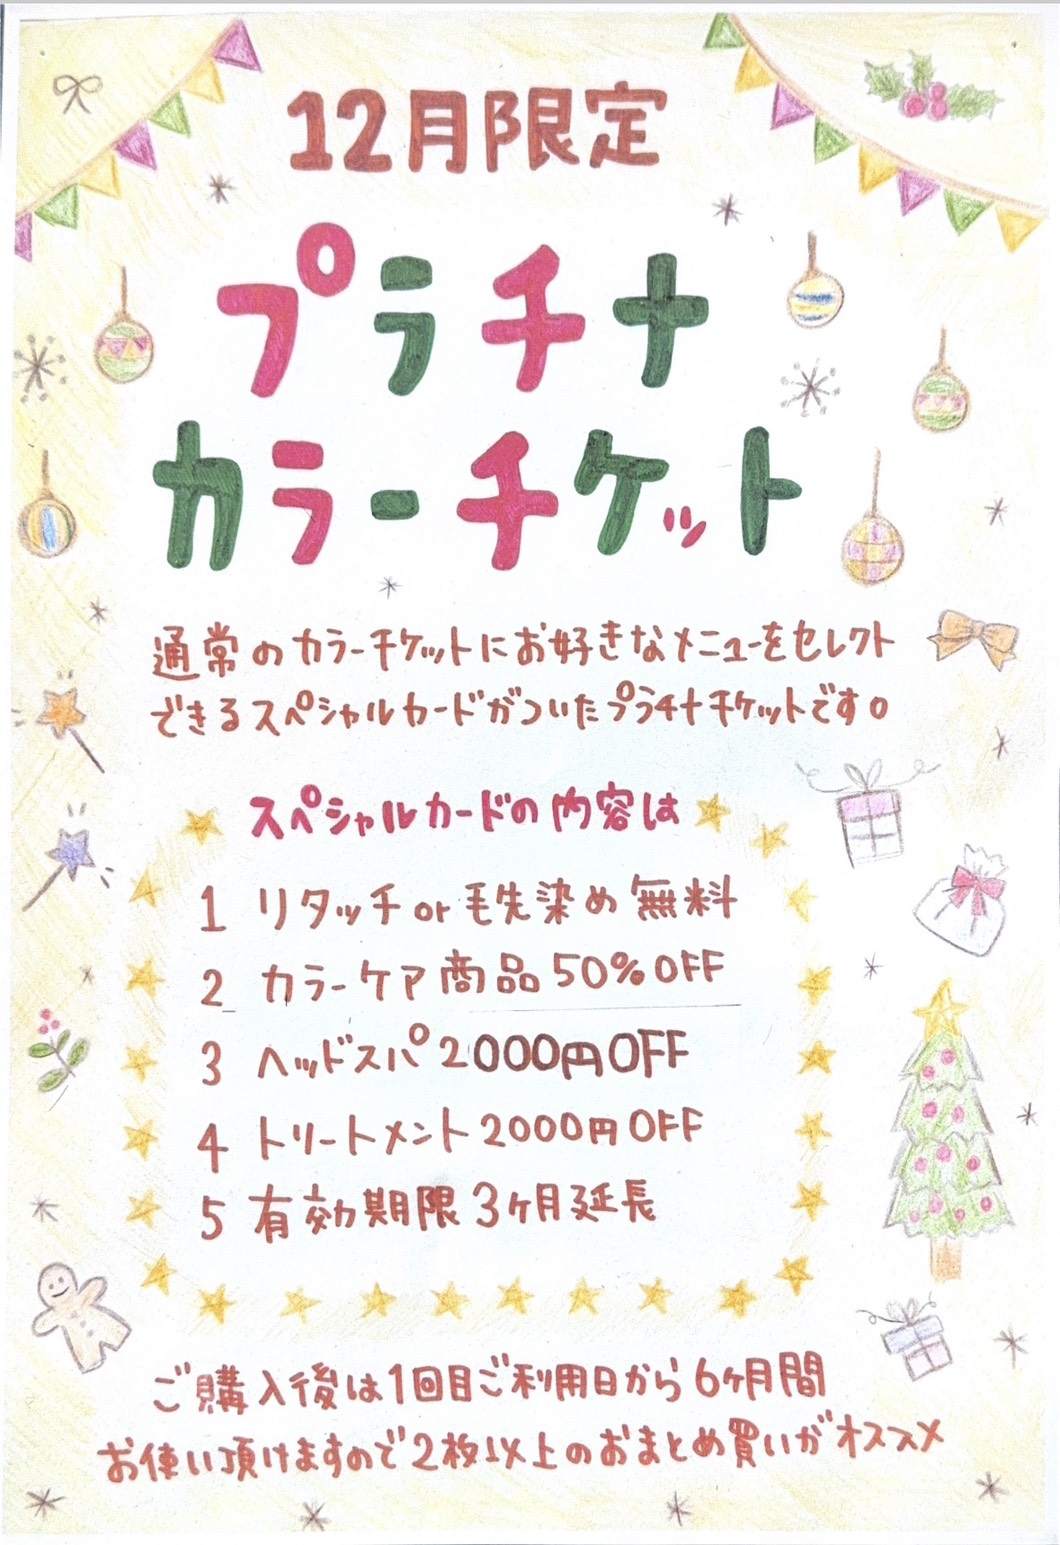 12月限定
プラチナ
カラーチケット
通常のカラーチケットにお好きなメニューをセレクト
できるスペシャルカードがついたプラチナチケットです。
スペシャルカードの内容は
1 リタッチor毛先染め無料
2 カラーケア商品50%OFF
3 ヘッドスパ2000円OFF
4 トリートメント2000円OFF
5 有効期限3ヶ月延長
ご購入後は1回目ご利用日から6ヶ月間
お使い頂けますので2枚以上のおまとめ買いがオススメ